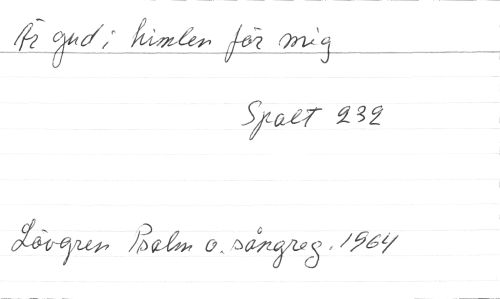 Är gud i himlen för mig
Spalt 232
Lövgren Psalm o. sångreg. 1964